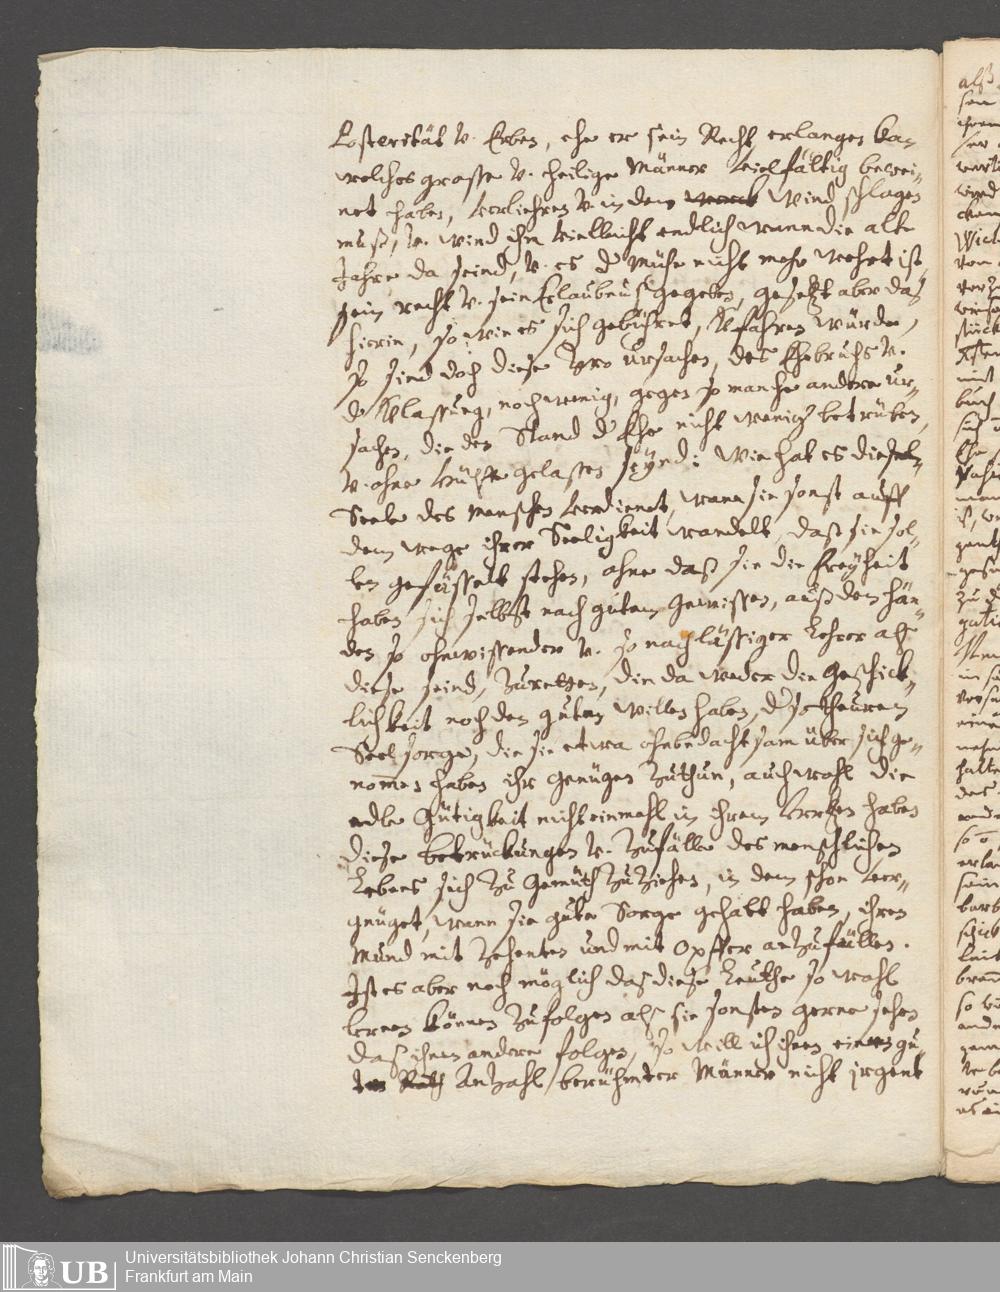 Posterität v. Erben, ehe er sein Recht erlangen kan
welches grosse v. heilige Männer vielfältig bewei-
net haben, verliehren v. in den Wind schlagen
muß, v. wird ihm vielleicht endlich wann die alte
Jahre da seind, v. es d Mühe nicht mehr wehrt ist
sein recht v. sein Erlaubnuß gegeben, gesetzt aber daß
hierin, so wie es sich gebühret, verfahren würde,
so sind doch diese zwo ursachen, des Ehebruchs v.
d verlassung, noch wenig, gegen so manche andere ur-
sachen, die den Stand d Ehe nicht wenig betrüben,
v. ohne hülffe gelassen seynd: Wie hat es die
Seele des menschen verdienet, wann sie sonst auff
dem wege ihrer Seeligkeit wandelt, daß sie sol-
len gefüsselt stehen, ohne daß sie die freyheit
haben sich selbst nach gutem Gewissen, auß den hän-
den so ohnwissender v. so nachlässiger Lehrer alß
diese seind, zuretten, die da weder die Geschick-
lichkeit noch den guten willen haben, d so theuren
Seelsorge, die sie etwa ohnbedachtsam über sich ge-
nom̅en haben ihr genügen zuthun, auch wohl die
edle Gütigkeit nicht einmahl in ihrem Hertzen haben
diese betrückungen v. Zufälle des menschlichen
Lebens sich zu Gemüth zuziehen, in dem schon ver-
gnüget, wann sie gute Sorge gehabt haben, ihren
Mund mit Zehenten und mit Opffer anzufüllen.
Ist es aber noch möglich daß diese Leuthe so wohl
lernen können zufolgen alß sie sonsten gerne sehen
daß ihnen andere folgen, so will ich ihnen eine gu-
te Anzahl berühmter Männer nicht irgent
UB
Universitätsbibliothek Johann Christian Senckenberg
Frankfurt am Main